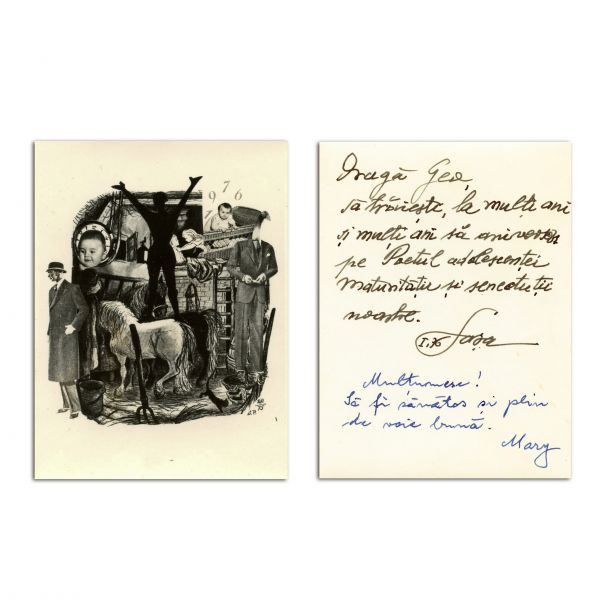 1976
S.P.
75
Dragă Geo,
să trăiește, la mulți ani
și mulți ani să aniversăm
pe Poetul adolescenței
maturității și senectuții
noastre.
I.76 Sașa
Mulțumesc!
Să fii sănătos și plin
de voie bună.
Mary